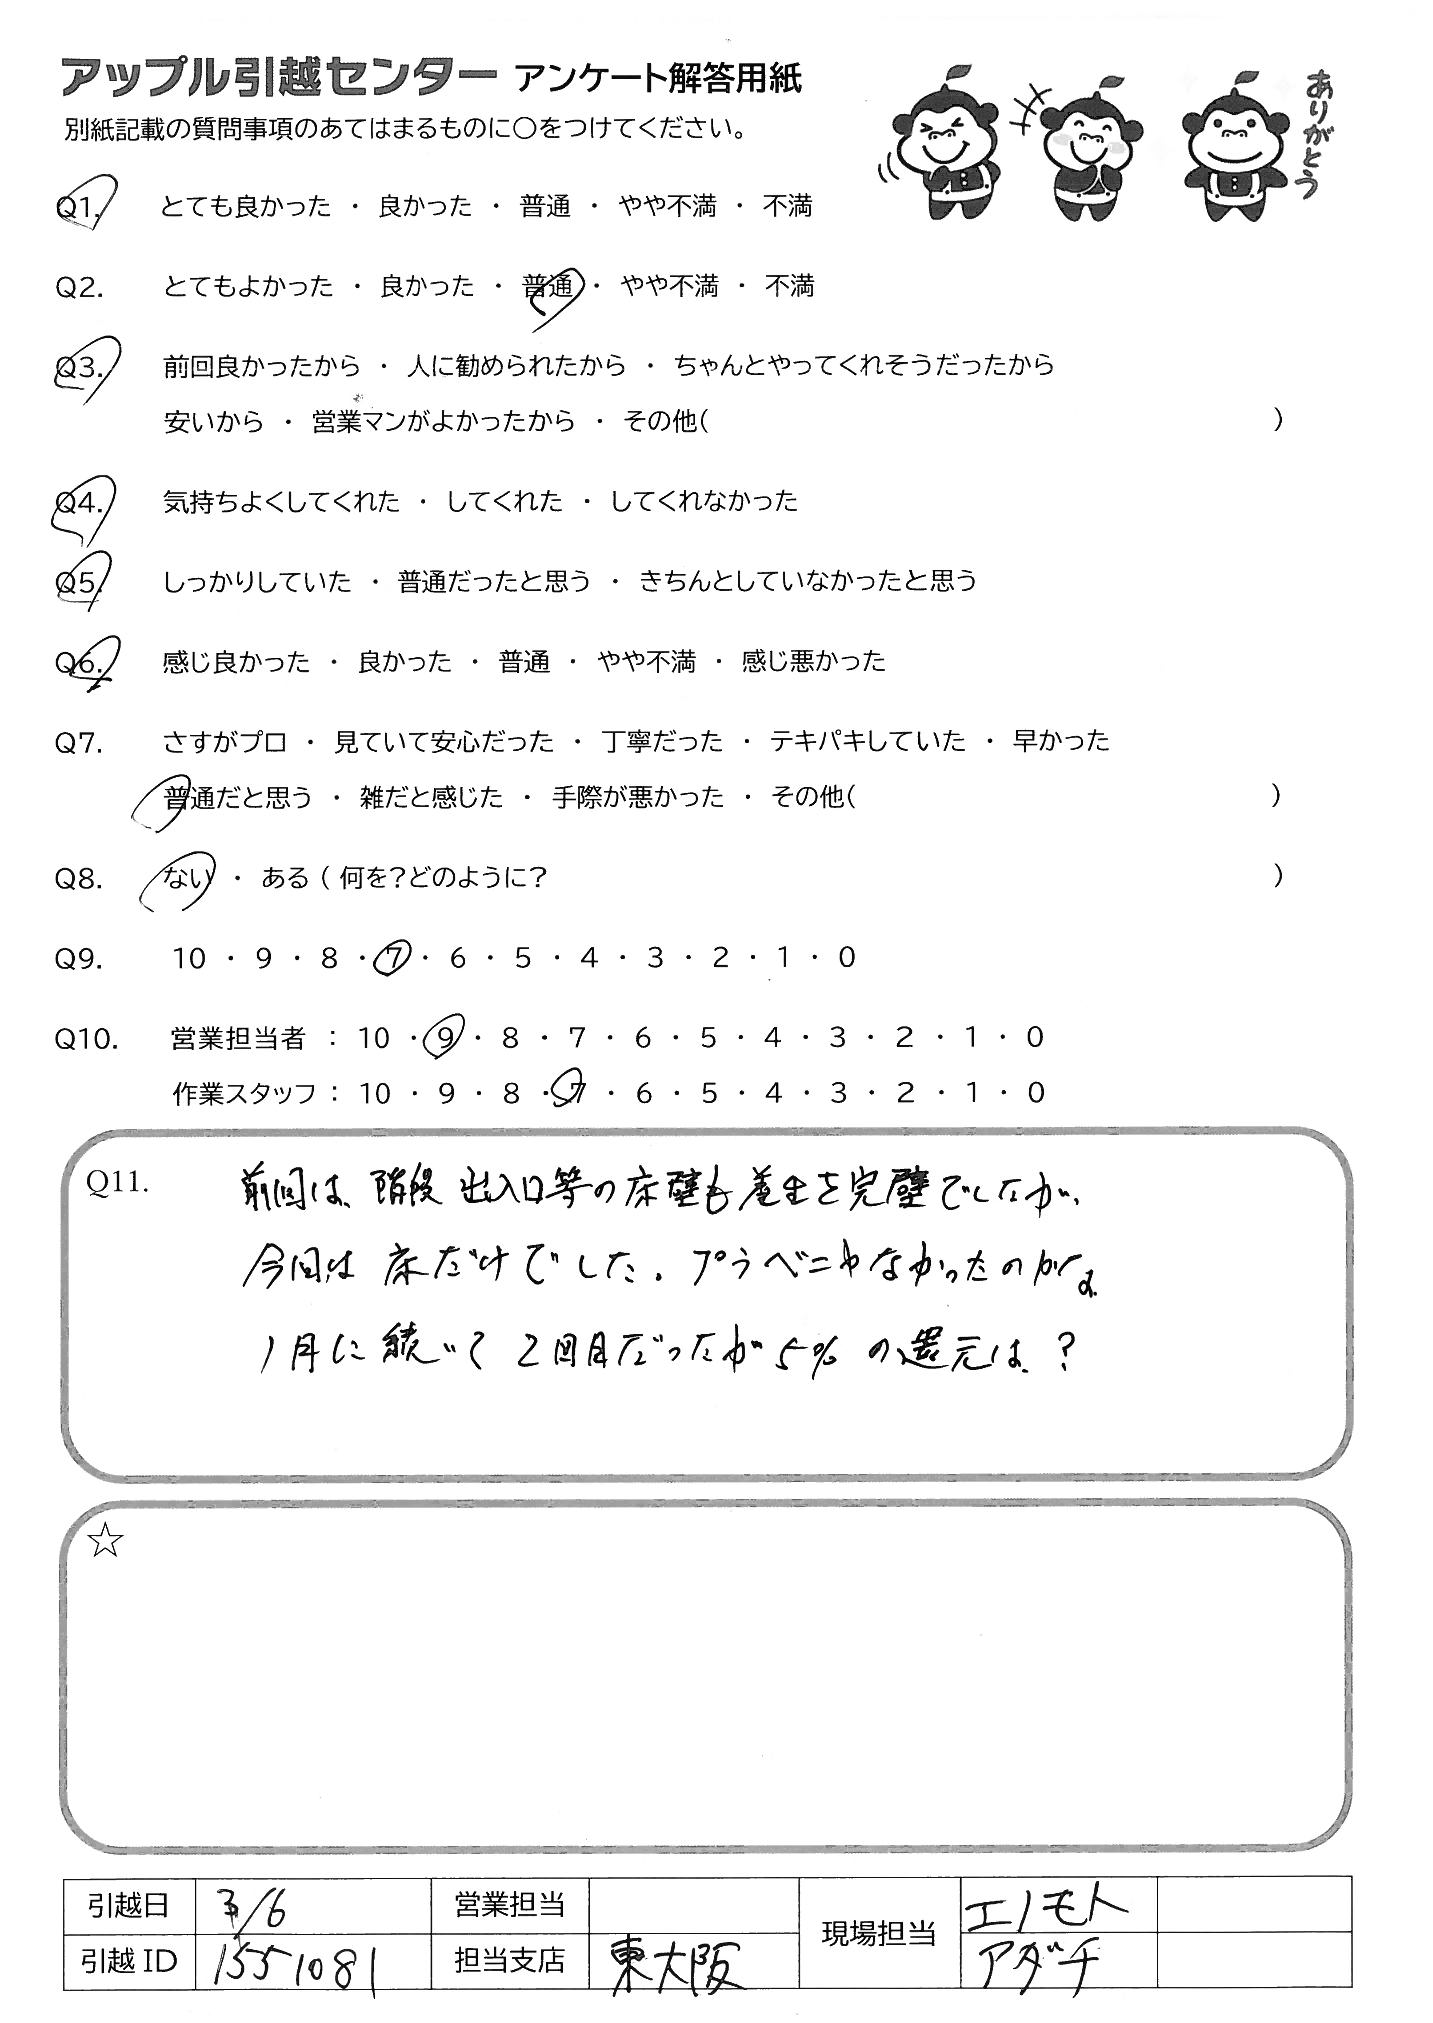 アップル引越センター アンケート解答用紙
ありがとう
別紙記載の質問事項のあてはまるものに〇をつけてください。
Q1. とても良かった ・ 良かった ・ 普通 ・ やや不満 ・ 不満
Q2. とてもよかった ・ 良かった ・ 普通 ・ やや不満 ・ 不満
Q3. 前回良かったから ・ 人に勧められたから ・ ちゃんとやってくれそうだったから
安いから ・ 営業マンがよかったから ・ その他( )
Q4. 気持ちよくしてくれた ・ してくれた ・ してくれなかった
Q5. しっかりしていた ・ 普通だったと思う ・ きちんとしていなかったと思う
Q6. 感じ良かった ・ 良かった ・ 普通 ・ やや不満 ・ 感じ悪かった
Q7. さすがプロ ・ 見ていて安心だった ・ 丁寧だった ・ テキパキしていた ・ 早かった
普通だと思う ・ 雑だと感じた ・ 手際が悪かった ・ その他( )
Q8. ない ・ ある ( 何を?どのように? )
Q9. 10 ・ 9 ・ 8 ・ 7 ・ 6 ・ 5 ・ 4 ・ 3 ・ 2 ・ 1 ・ 0
Q10. 営業担当者 : 10 ・ 9 ・ 8 ・ 7 ・ 6 ・ 5 ・ 4 ・ 3 ・ 2 ・ 1 ・ 0
作業スタッフ : 10 ・ 9 ・ 8 ・ 7 ・ 6 ・ 5 ・ 4 ・ 3 ・ 2 ・ 1 ・ 0
Q11. 前回は、階段 出入口等の床壁も養生を完璧でしたが、
今回は 床だけでした。プラベニヤなかったのかな
1月に続いて 2回目だったが 5%の還元は?
☆
引越日 3/6 営業担当 現場担当 エノモト
引越ID 1551081 担当支店 東大阪 アダチ